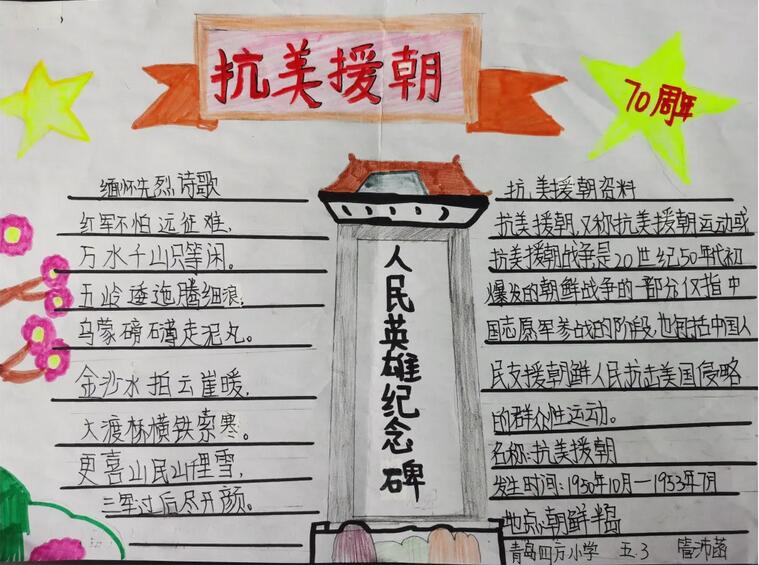 抗美援朝
70周年
缅怀先烈诗歌
红军不怕远征难,
万水千山只等闲。
五岭逶迤腾细浪,
乌蒙磅礴走泥丸。
金沙水拍云崖暖,
大渡桥横铁索寒。
更喜岷山千里雪,
三军过后尽开颜。
人民英雄纪念碑
抗美援朝资料
抗美援朝,又称抗美援朝运动或
抗美援朝战争是20世纪50年代初
爆发的朝鲜战争的一部分仅指中
国志愿军参战的阶段,也包括中国人
民支援朝鲜人民抗击美国侵略
的群众性运动。
名称:抗美援朝
发生时间:1950年10月—1953年7月
地点:朝鲜半岛
青岛四方小学 五.3 管沛菡